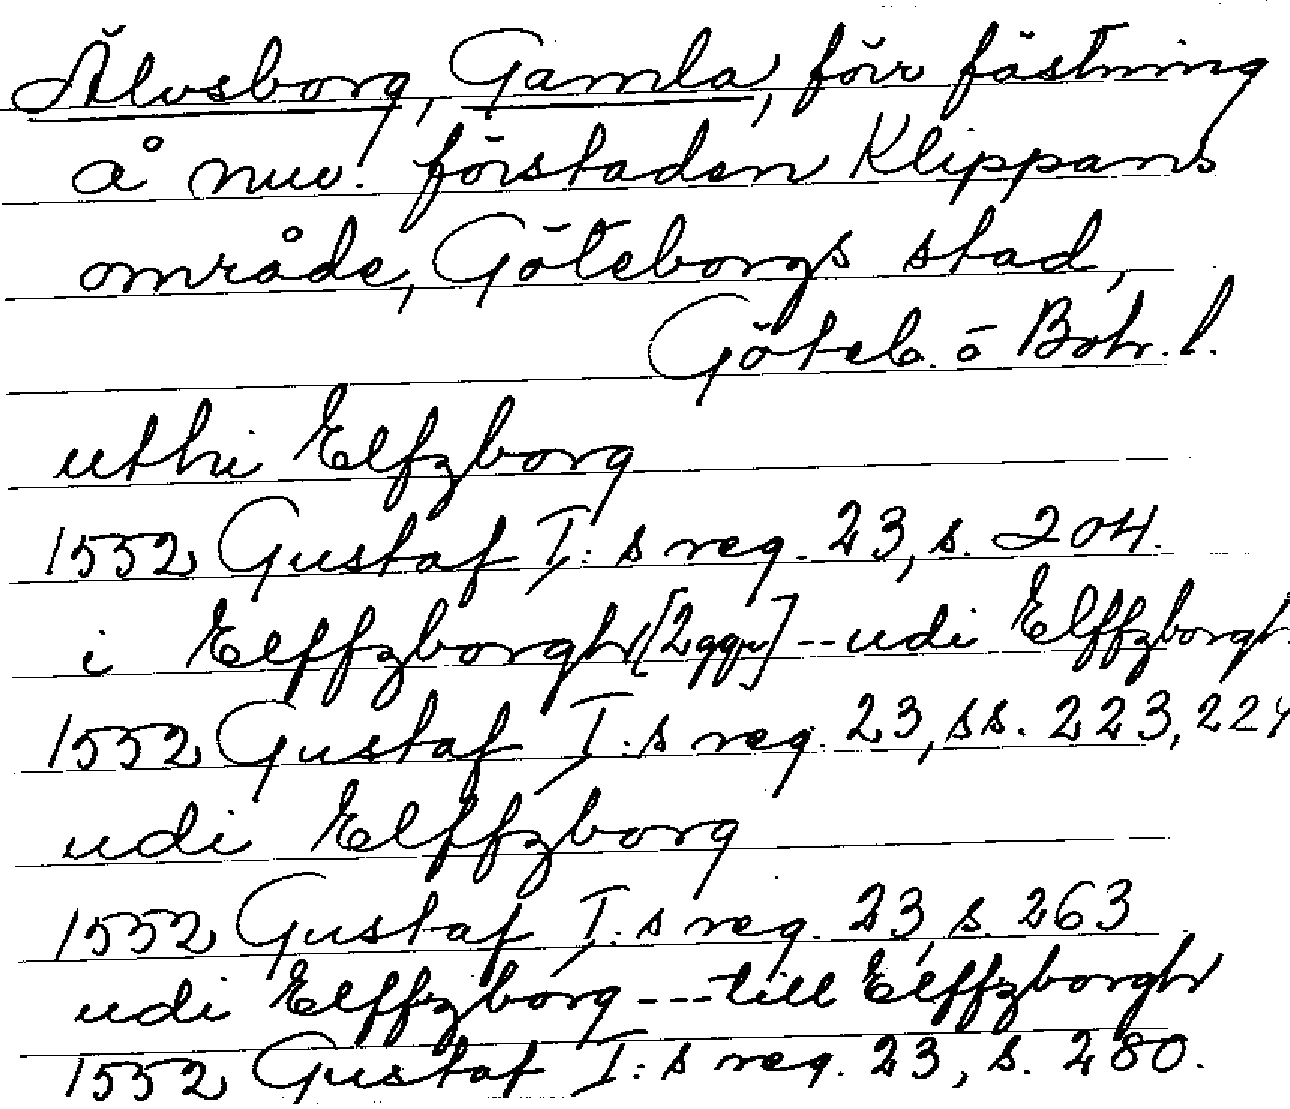 Älvsborg, Gamla, förr fästning
å nuv. förstaden Klippans
område, Göteborgs stad,
Göteb. o Boh. l.
uthi Elfzborg
1552 Gustaf I:s reg. 23, s. 204.
i Elffzborgh [2 ggr] -- udi Elffzborgh
1552 Gustaf I:s reg. 23, ss. 223, 224
udi Elffzborg
1552 Gustaf I:s reg. 23, s. 263
udi Elffzborg --- till Elffzborgh
1552 Gustaf I:s reg. 23, s. 280.